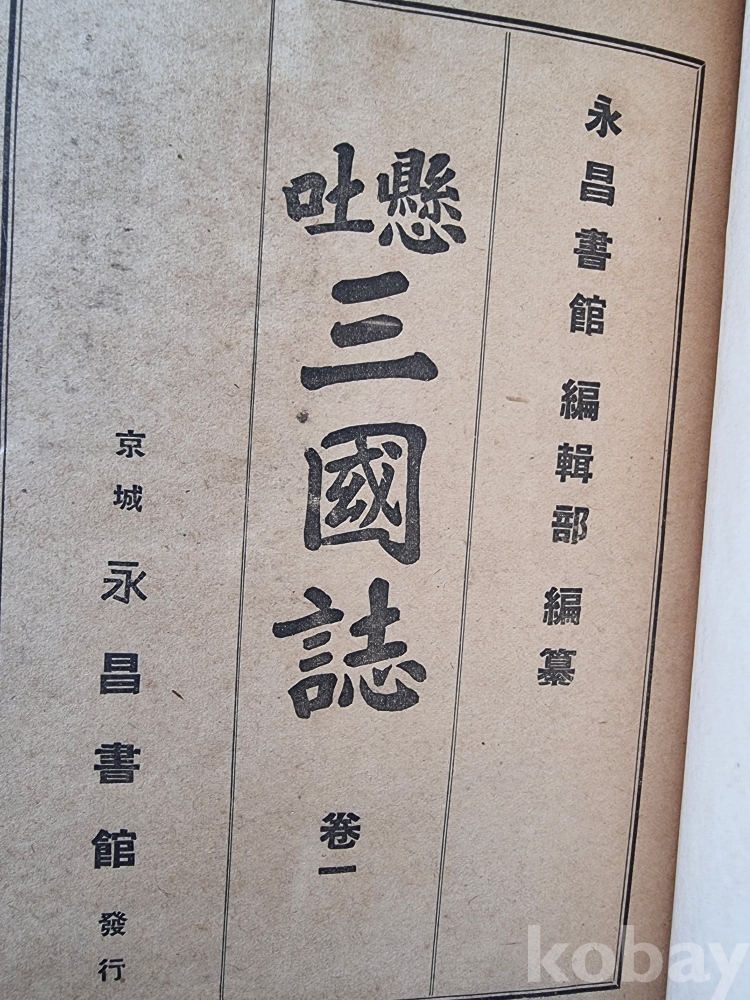 永昌書館 編輯部 編纂
懸吐
三國誌
卷一
京城 永昌書館 發行
kobay